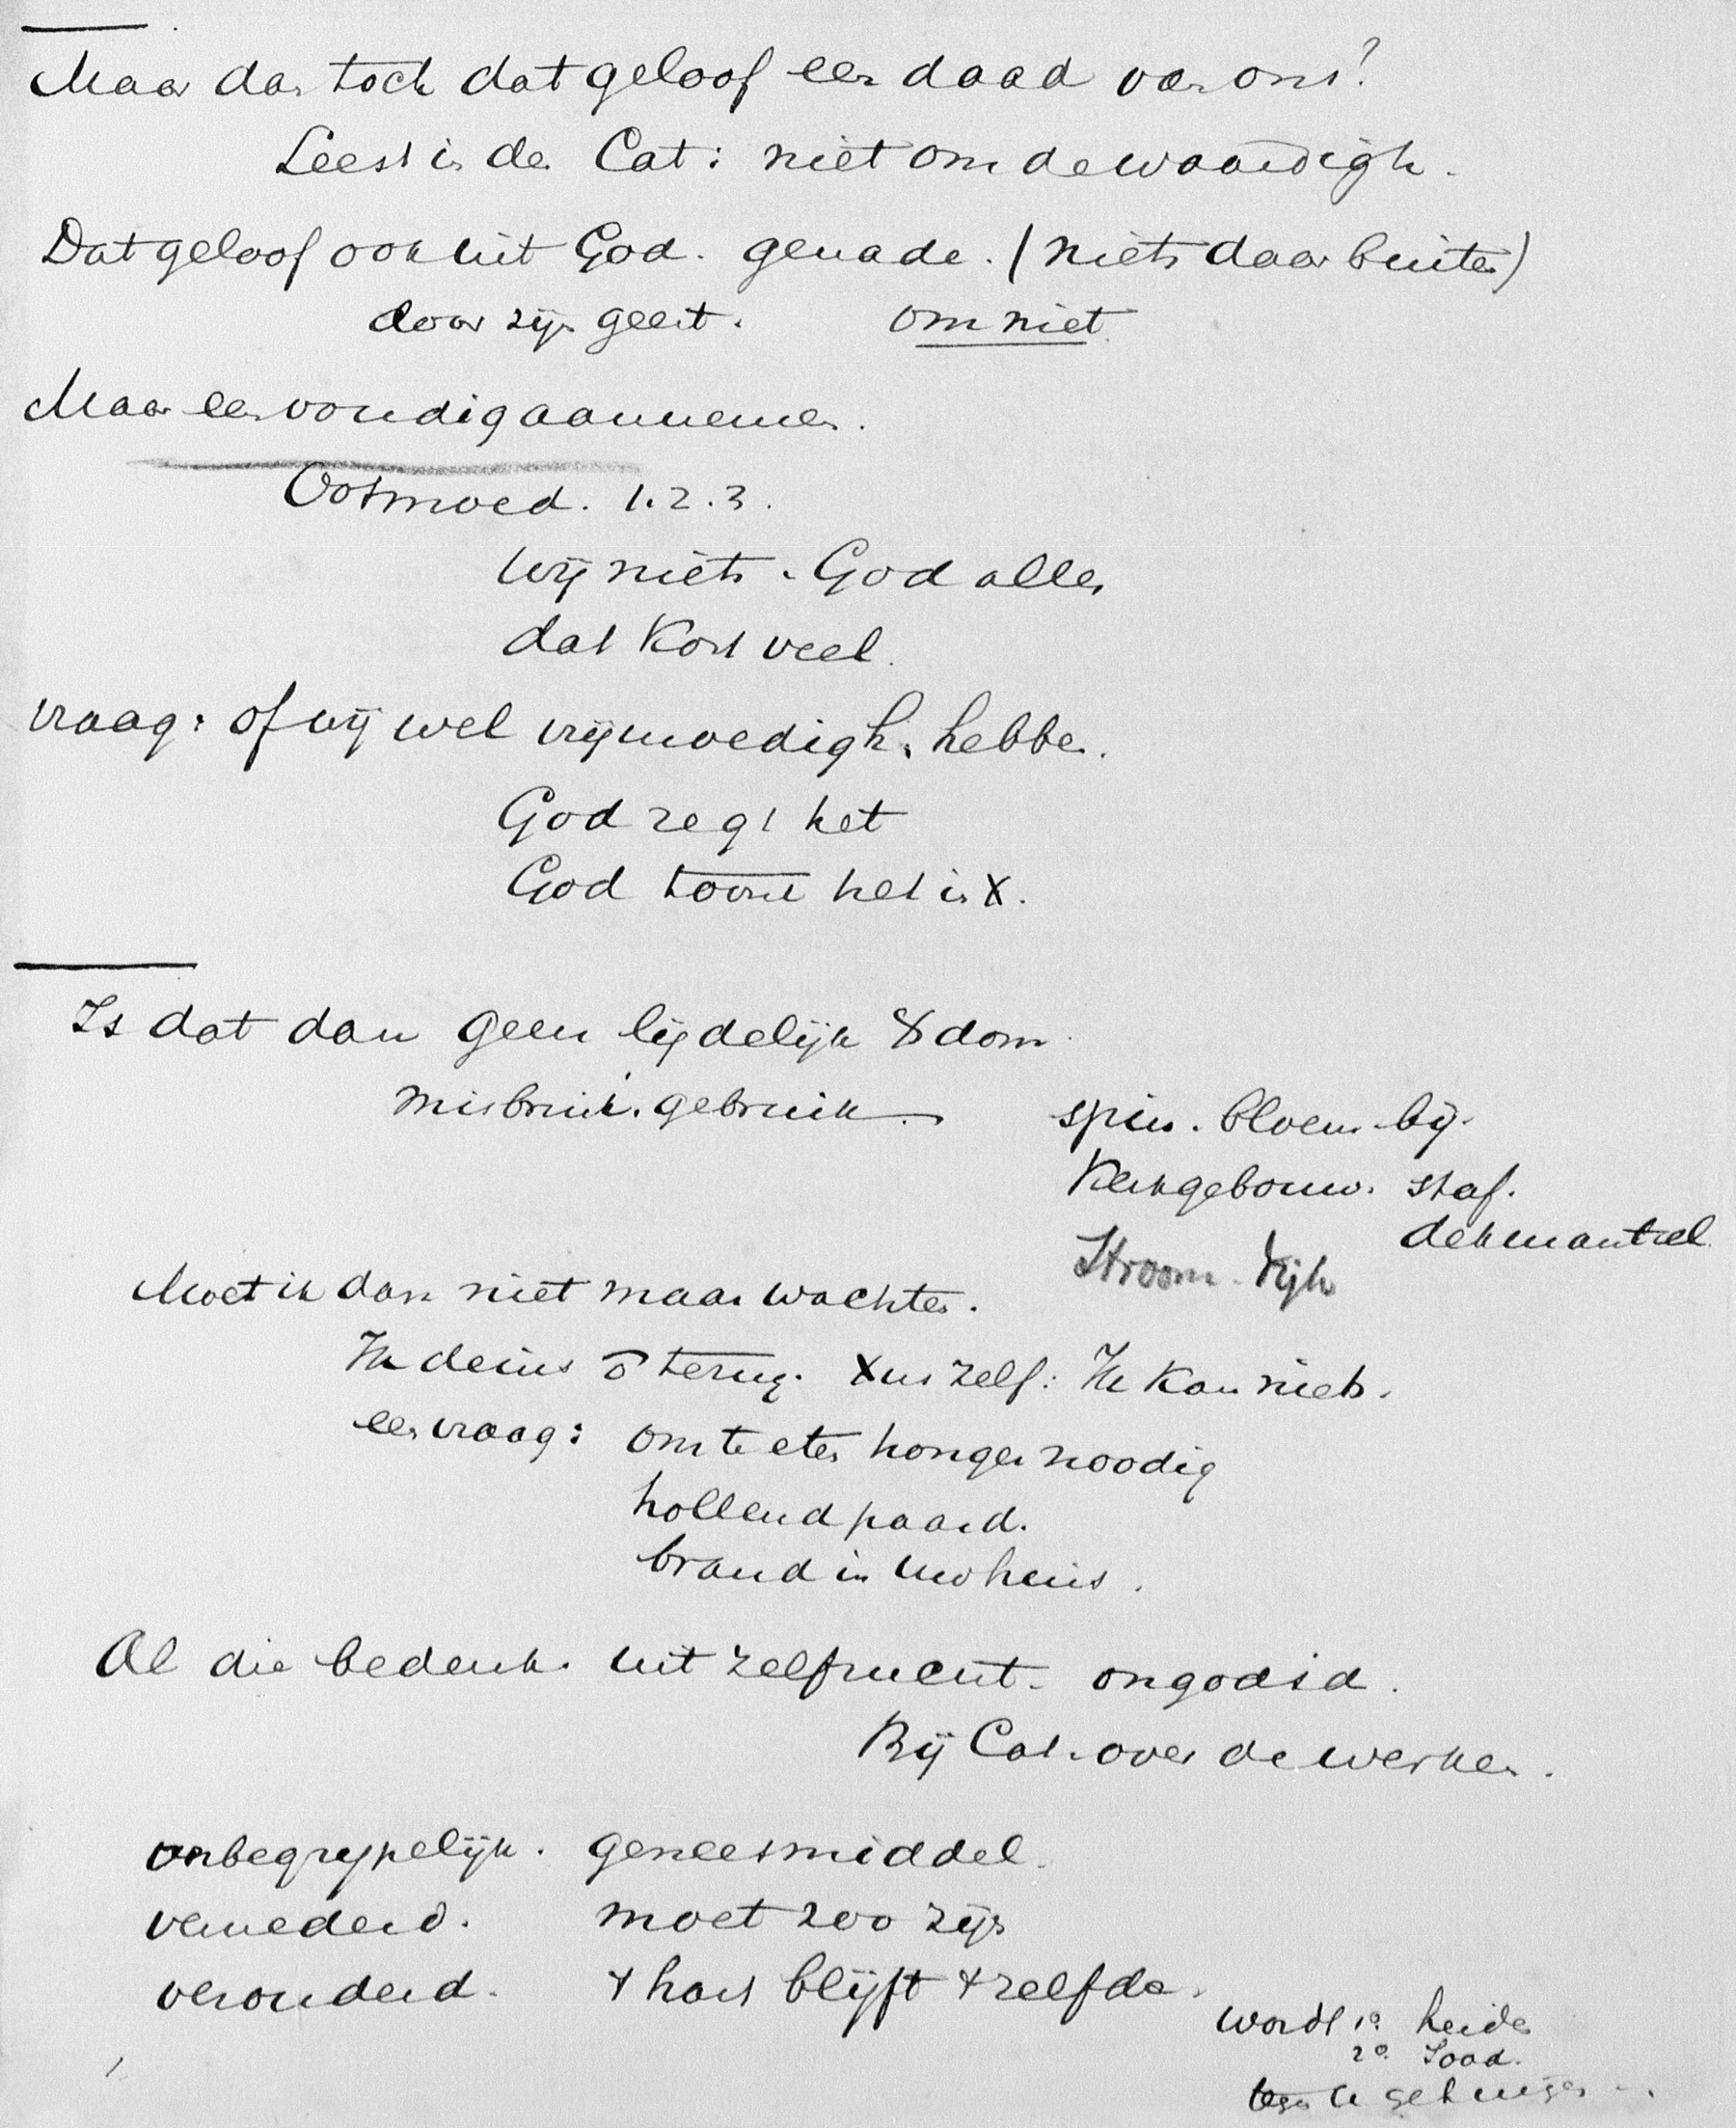 Maar dan toch dat geloof een daad van ons?
Leest in de Cat: niet om de waardigh.
Dat geloof ook uit God. genade. (niets daarbuiten)
door zijn geest. om niet
Maar eenvoudig aannemen.
Ootmoed. 1. 2. 3.
Wij niets. God alles
dat kost veel.
vraag: of wij wel vrijmoedigh. hebben.
God zegt het
God toont het in X.
Is dat dan geen lijdelijk Xdom
misbruik. gebruik.
spin. bloem. bij.
Kerkgebouw. staf.
dekmantel
Stroom. Dijk
Moet ik dan niet maar wachten.
Ik deins terug. Xus zelf: Ik kan niets.
een vraag: om te eten honger noodig
hollend paard.
brand in uw huis.
Al die bedenk. uit zelfrucht. ongodsd.
Bij Cat. over de werken.
onbegrijpelijk. geneesmiddel.
vernederd. moet zoo zijn
verouderd. + hart blijft + zelfde.
wordt 1o heiden
2o Jood.
tegen U getuigen